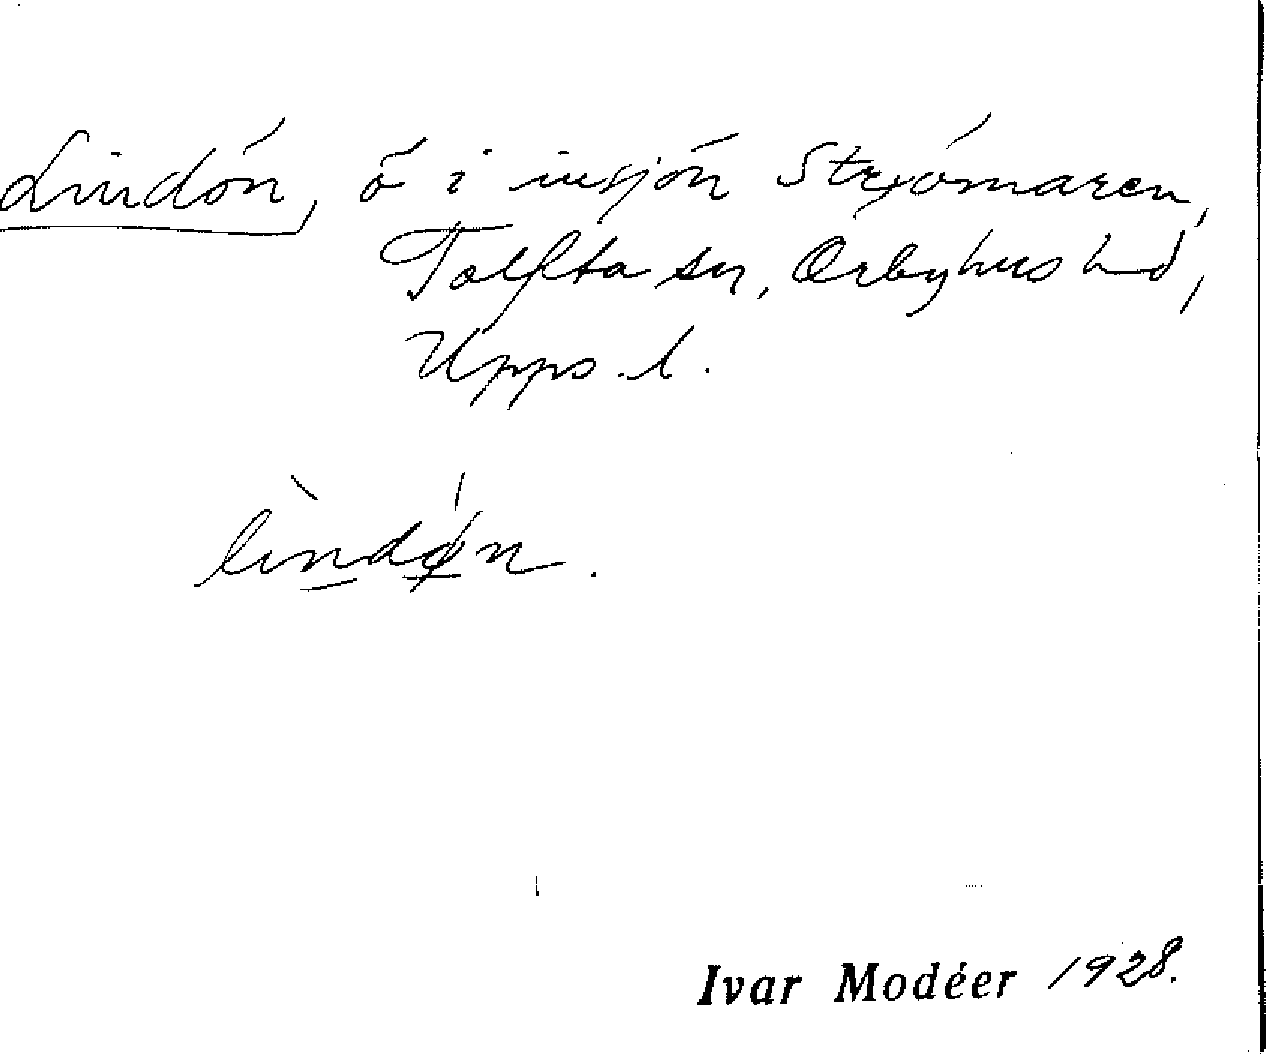 Lindön, ö i insjön Strömaren,
Tolfta sn, Örbyhus hd,
Upps. l.
lindø̀n.
Ivar Modéer 1928.